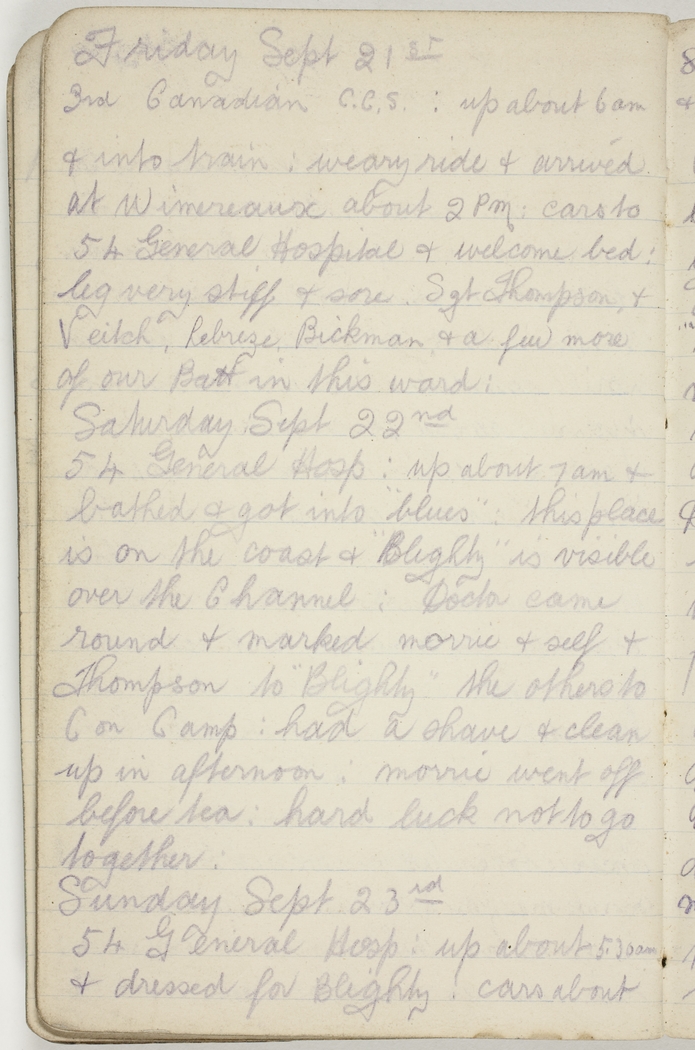 Friday Sept 21st
3rd Canadian C.C.S. : up about 6am
& into train : weary ride & arrived
at Wimereaux about 2 PM : cars to
54 General Hospital & welcome bed :
leg very stiff & sore. Sgt Thompson &
Veitch, Bickman & a few more
of our Batt in this ward :
Saturday Sept 22nd
54 General Hosp : up about 7am &
bathed & got into "blues" : this place
is on the coast & "Blighty" is visible
over the Channel : Doctor came
round & marked morrie & self &
Thompson to "Blighty" the others to
Con Camp : had a shave & clean
up in afternoon : morrie went off
before tea : hard luck not to go
together :
Sunday Sept 23rd
54 General Hosp : up about 5.30am
& dressed for Blighty : cars about